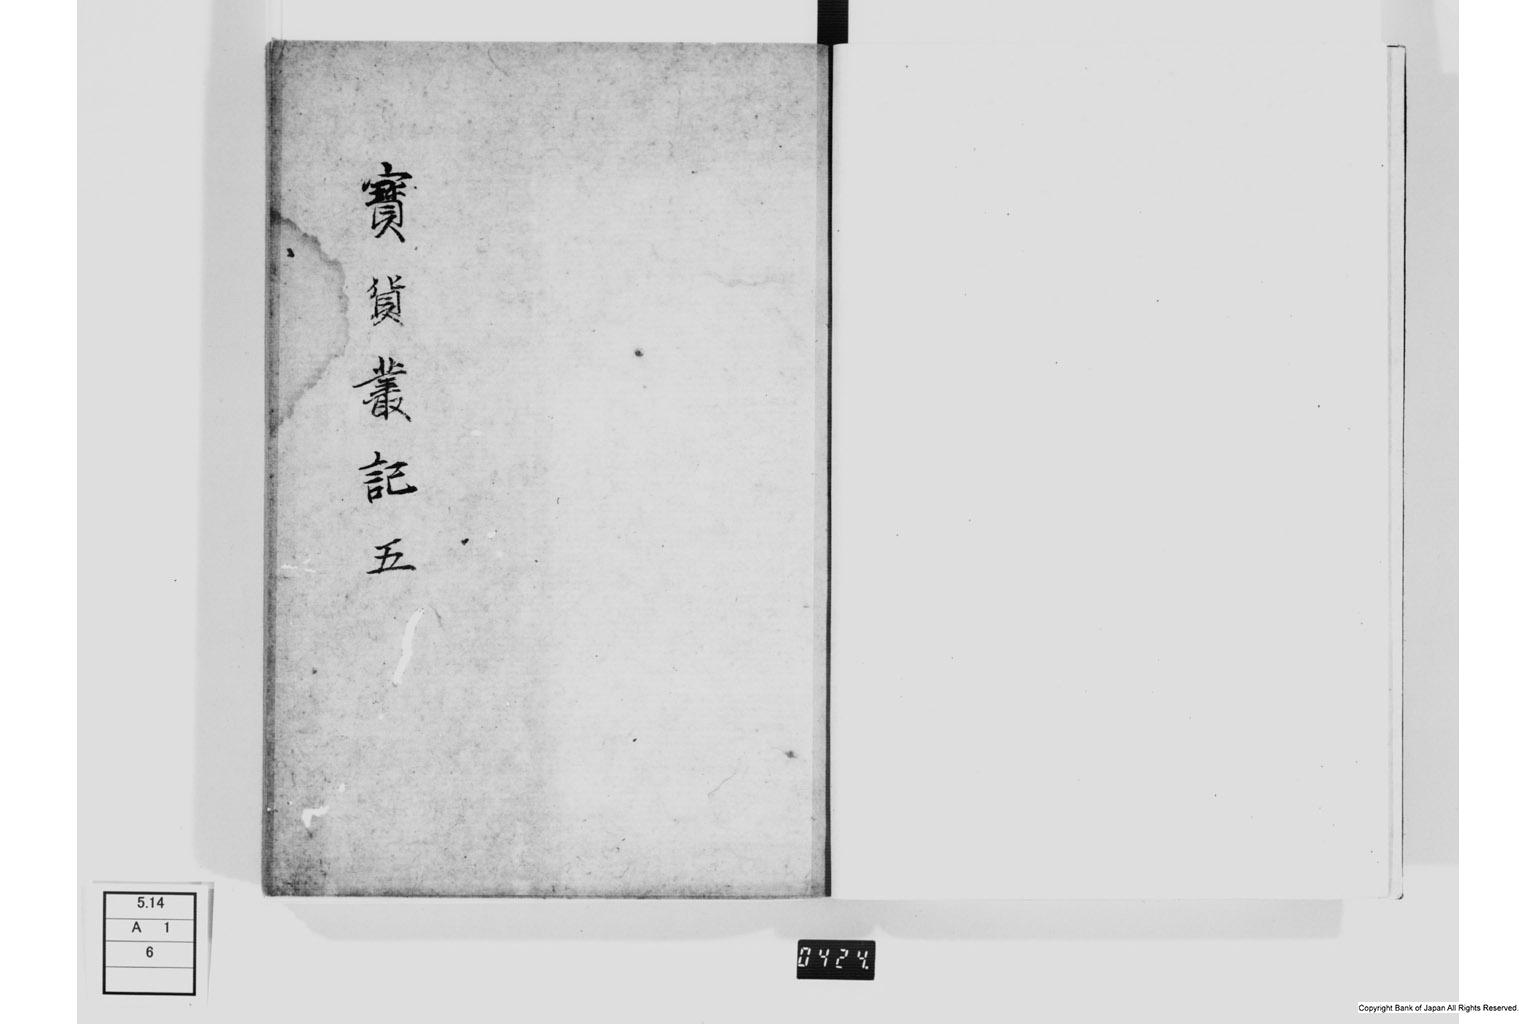 寳貨叢記五
5.14
A 1
6
0424.
Copyright Bank of Japan All Rights Reserved.